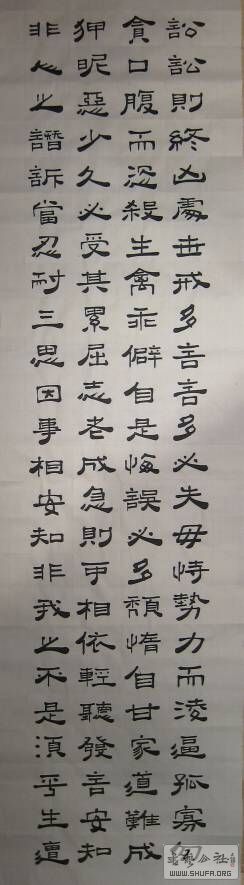 訟訟則終凶處世戒多言言多必失毋恃勢力而淩逼孤寡勿
貪口腹而恣殺生禽乖僻自是悔誤必多頹惰自甘家道難成
狎昵惡少久必受其累屈志老成急則可相依輕聽發言安知
非人之譖訴當忍耐三思因事相安知非我之不是須平生遭
WWW.SHUFA.ORG